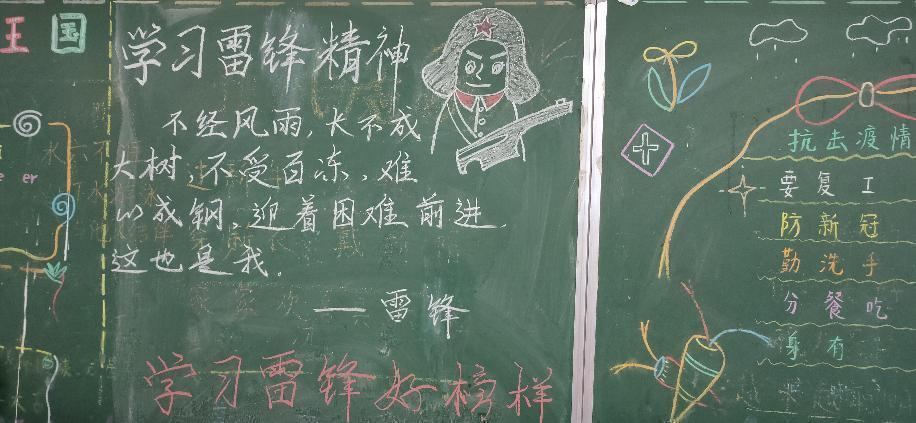 王国
er
学习雷锋精神
不经风雨,长不成
大树,不受百冻,难
以成钢,迎着困难前进,
这也是我。
—雷锋
学习雷锋好榜样
抗击疫情
要复工
防新冠
勤洗手
分餐吃
身有